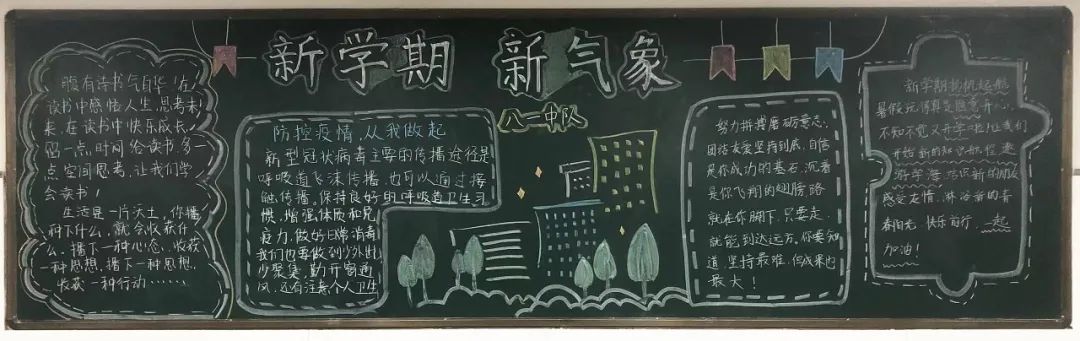 新学期 新气象
八一中队
腹有诗书气自华,在
读书中感悟人生,思考未
来,在读书中快乐成长,
一点时间给读书,多一
点空间思考,让我们学
会读书!
生活是一片沃土,你播
种下什么,就会收获什
么,播下一种心态,收获
一种思想,播下一种思想,
收获一种行动……
防控疫情,从我做起
新型冠状病毒主要的传播途径是
呼吸道飞沫传播,也可以通过接
触传播。保持良好的呼吸道卫生习
惯,增强体质和免
疫力,做好日常消毒
我们也要做到少外出
少聚集,勤开窗通
风,还有注意个人卫生
努力拼搏磨砺意志,
团结友爱坚持到底,自信
是你成功的基石,沉着
是你飞翔的翅膀,路
就在你脚下,只要走,
就能到达远方。你要知
道,坚持最难,但成果也
最大!
新学期扬帆起航
暑假玩得真是随意开心,
不知不觉又开学啦!让我们
开始新的知识航程,遨
游学海,结识新的朋友
感受友情,沐浴着的青
春阳光,快乐前行,一起
加油!